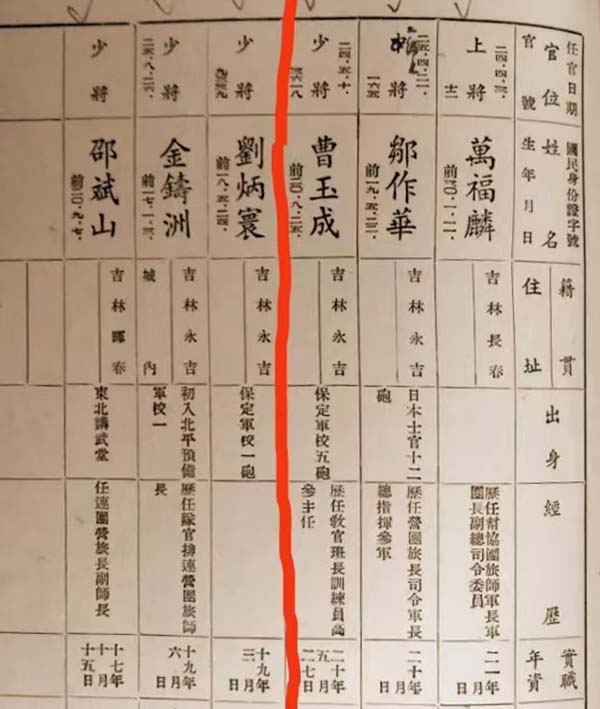 任官日期
官位
官號
國民身份證字號
姓名
生年月日
籍貫
住址
出身
經歷
實職
年資
二四、四、三、
上將
萬福麟
吉林長春
歷任幫協團旅師軍長軍
團長副總司令委員
二一年
月
日
中將
一六五
鄒作華
吉林永吉
日本士官十二
砲
歷任營團旅長司令軍長
總指揮參軍
二十年
月
日
二四、五、十、
少將
曹玉成
前二〇、八、二五、
吉林永吉
保定軍校五砲
歷任教官班長訓練員高
參主任
二十年
五月
二七日
少將
劉炳寰
前一八、五、二四、
吉林永吉
保定軍校一砲
十九年
三月
日
少將
金鑄洲
前一七、一、三、
吉林永吉
城內
初入北平預備
軍校一
歷任隊官排連營團旅師
長
十九年
六月
日
少將
邵斌山
前二〇、九、七、
吉林暉春
東北講武堂
任連團營旅長副師長
十七年
十月
十五日